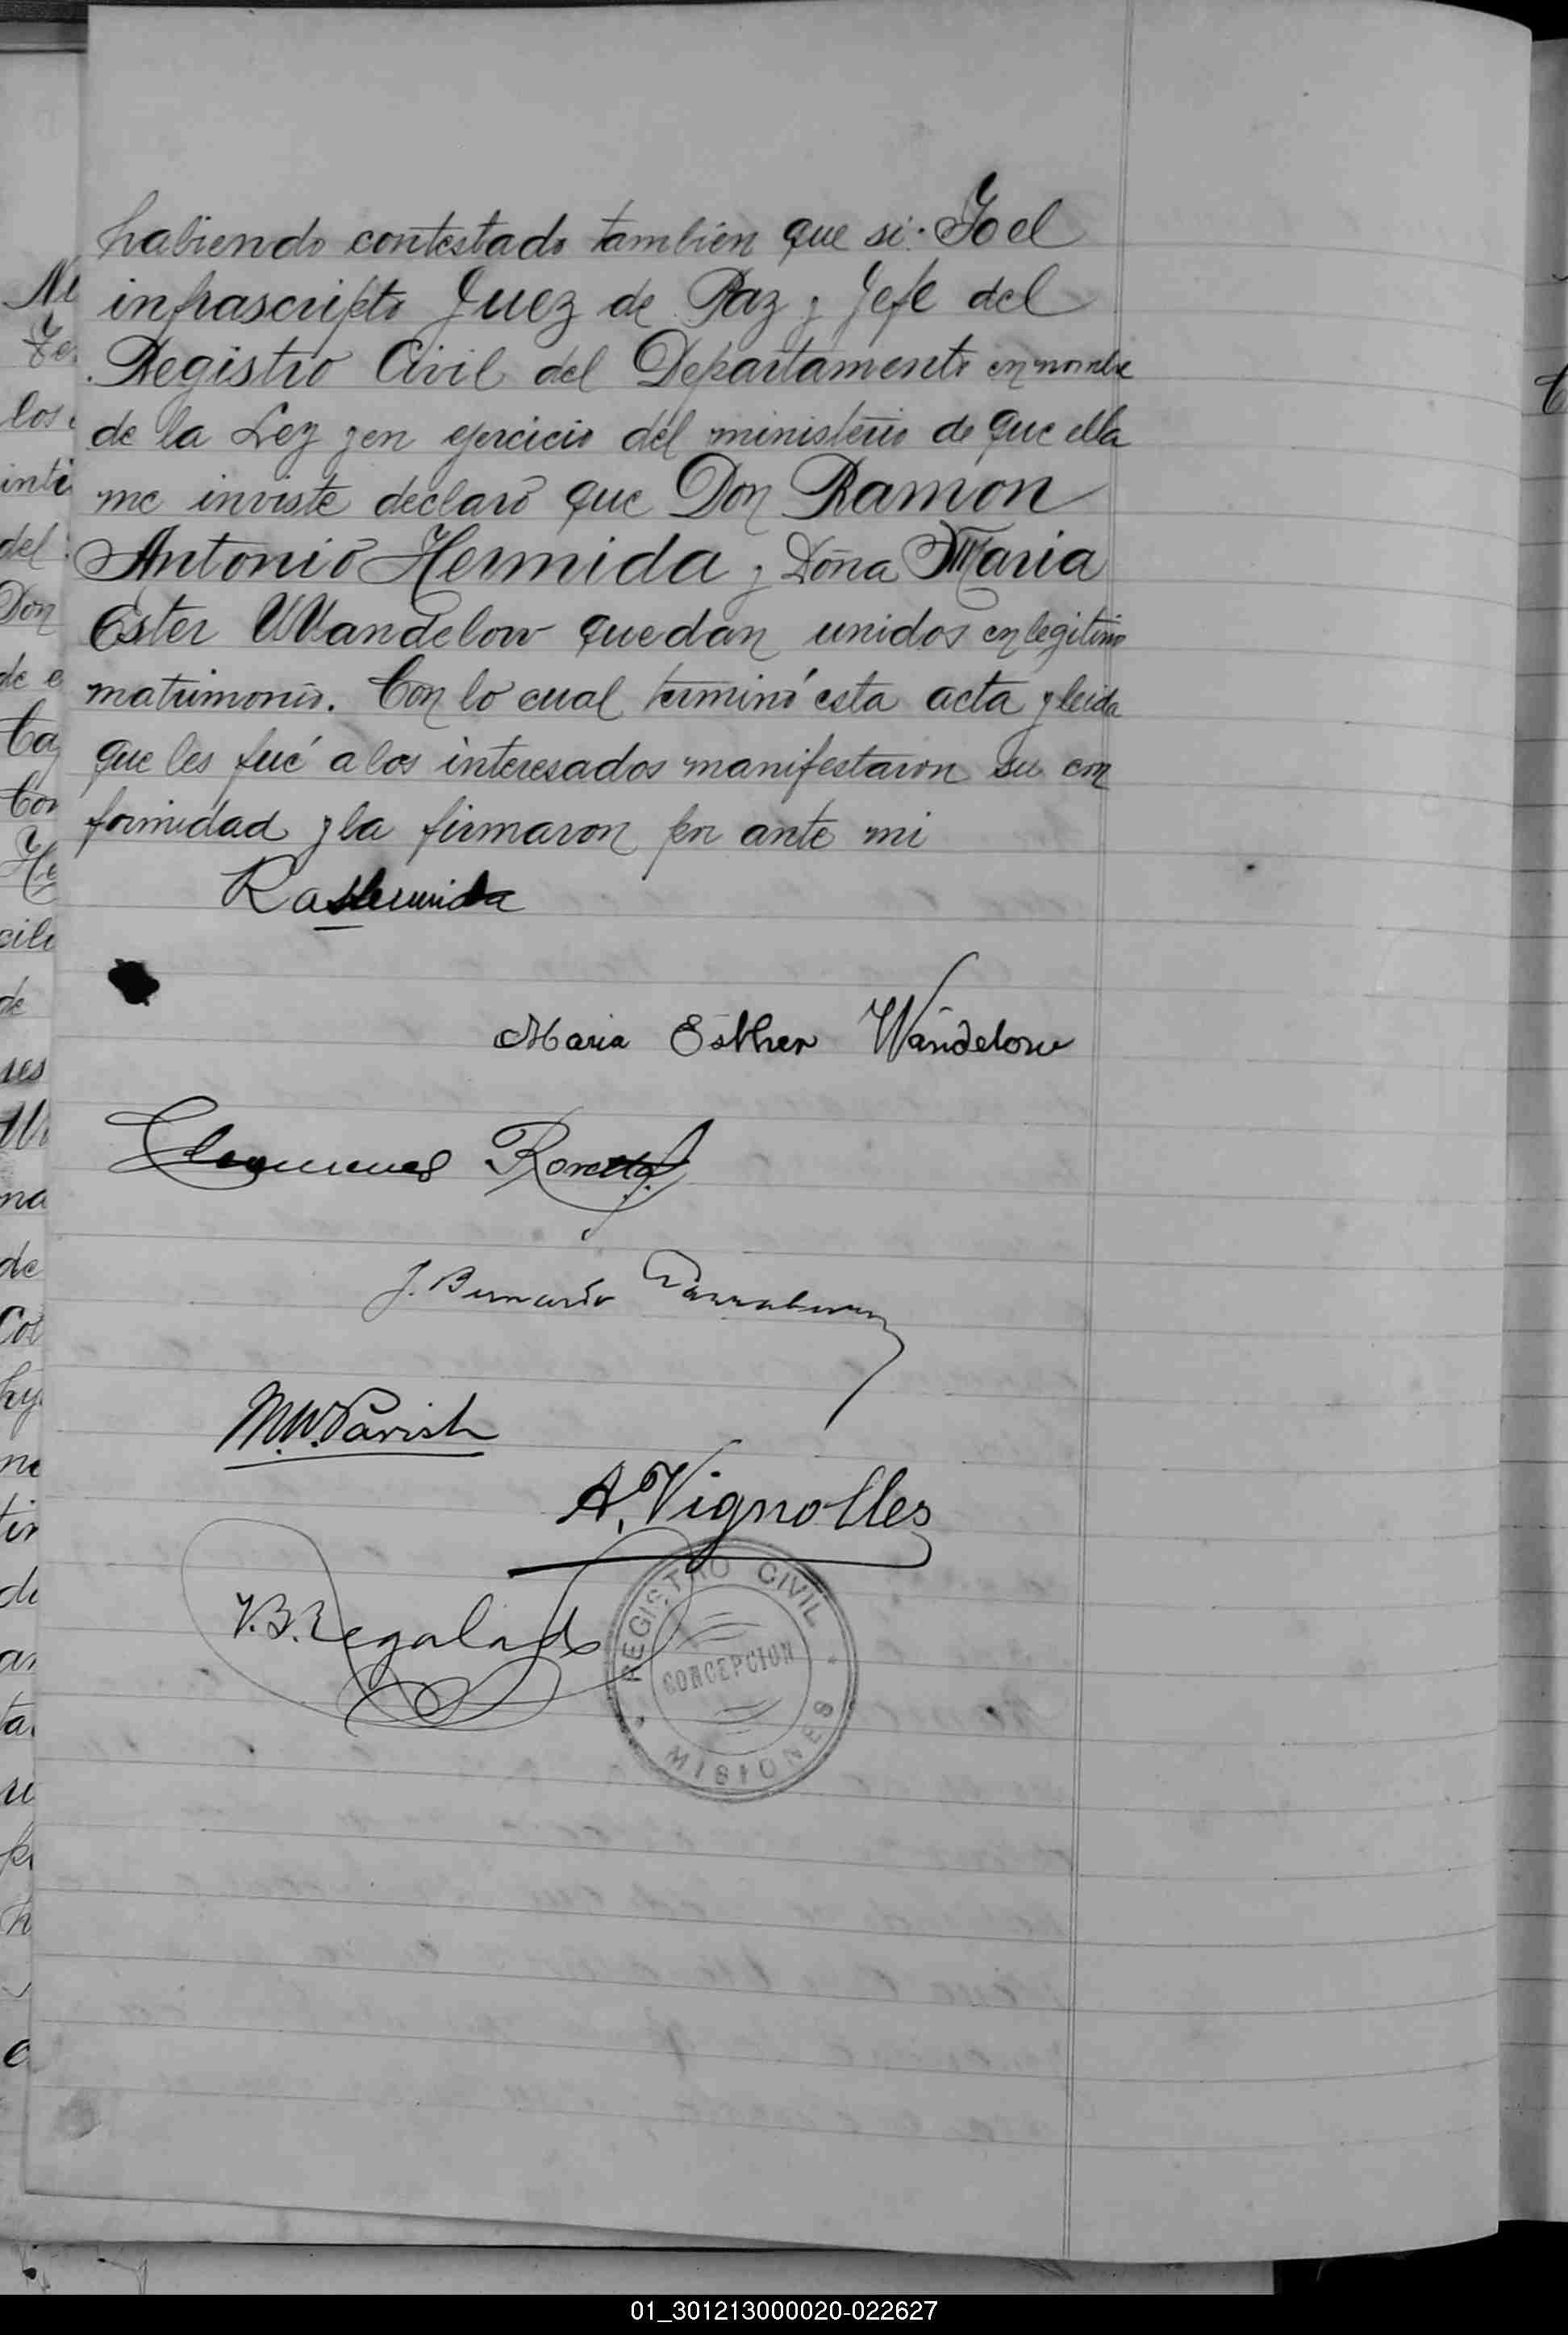 habiendo contestado tambien que si. Yo el
infrascripto Juez de Paz y Jefe del
Registro Civil del Departamento en nombre
de la Ley y en ejercicio del ministerio de que ella
me inviste declaro que Don Ramon
Antonio Hermida y Doña Maria
Ester Wandelow quedan unidos en legitimo
matrimonio. Con lo cual terminó esta acta y leida
que les fué a los interesados manifestaron su con
formidad y la firmaron por ante mi
Maria Esther Wandelow
J. Bernardo
M.W. Parish
A. Vignolles
V.B. Regalado
REGISTRO CIVIL
CONCEPCION
MISIONES
01_301213000020-022627